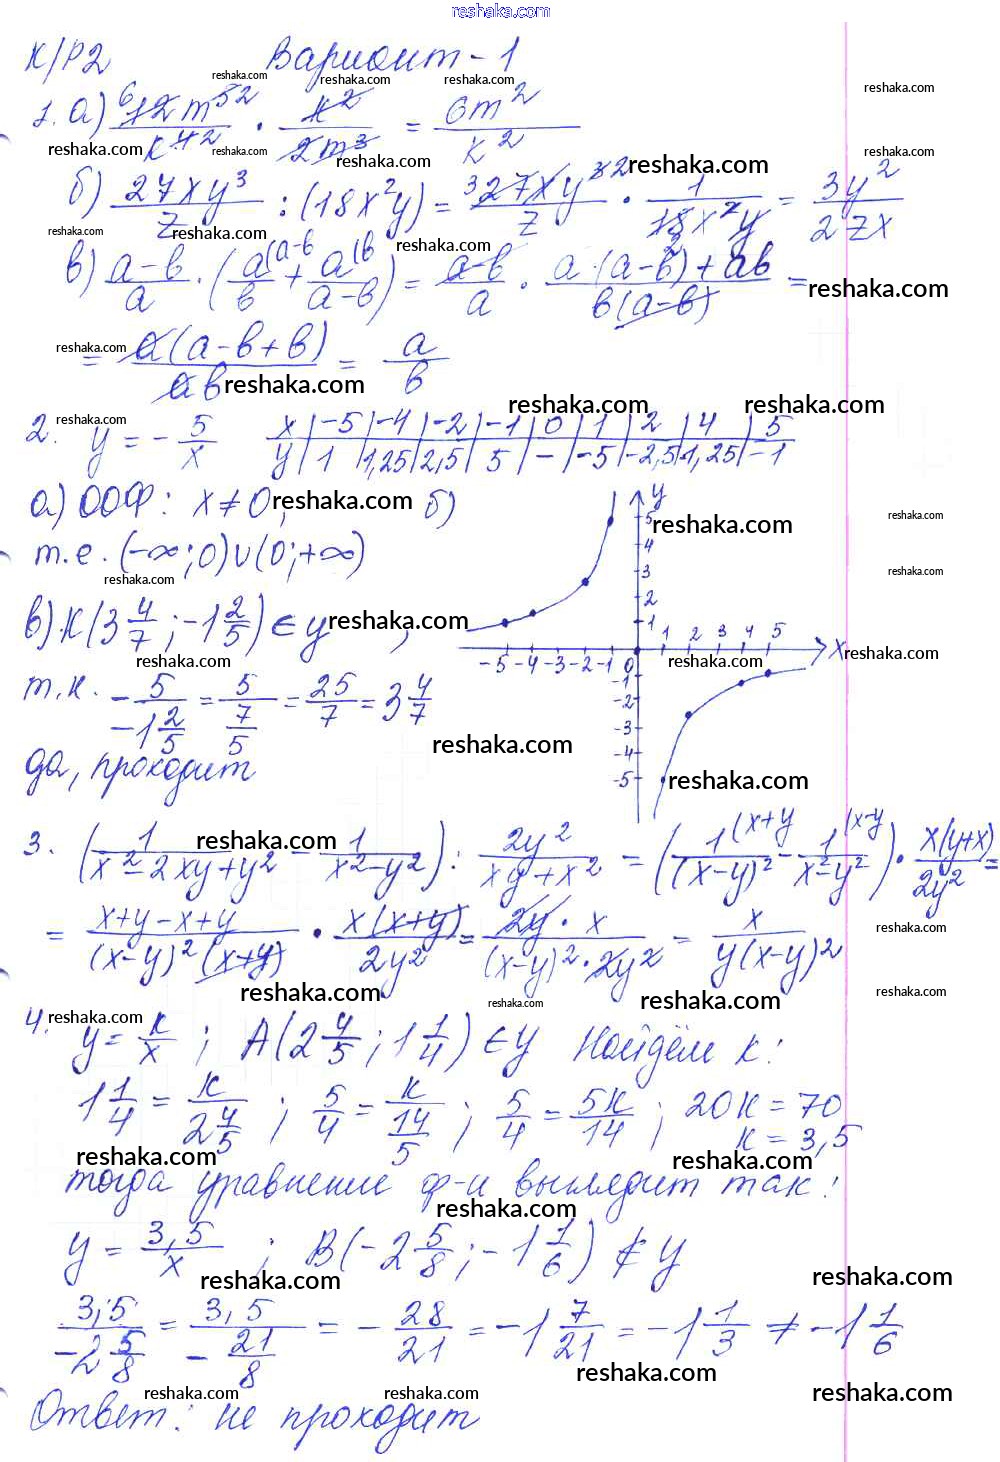 reshaka.com
К/Р2 Вариант - 1
1. а) 12m⁵/k⁴ · k²/2m³ = 6m²/k²
б) 27xy³/z : (18x²y) = 27xy³/z · 1/18x²y = 3y²/2zx
в) a-b/a · (a(a-b/b + a(b/a-b) = a-b/a · a·(a-b)+ab/b(a-b) =
= a(a-b+b)/ab = a/b
2. y = - 5/x
x | -5 | -4 | -2 | -1 | 0 | 1 | 2 | 4 | 5
y | 1 | 1,25 | 2,5 | 5 | - | -5 | -2,5 | -1,25 | -1
а) ООФ: x ≠ 0; б)
т.е. (-∞; 0) ∪ (0; +∞)
в) K(3 4/7 ; -1 2/5) ∈ y,
т.к. - 5/-1 2/5 = 5/(7/5) = 25/7 = 3 4/7
да, проходит
y
5
4
3
2
1
-5 -4 -3 -2 -1 0 1 2 3 4 5 x
-1
-2
-3
-4
-5
3. (1/x²-2xy+y² - 1/x²-y²) : 2y²/xy+x² = (1(x+y/(x-y)² - 1(x-y/x²-y²) · x(y+x)/2y² =
= x+y-x+y/(x-y)²(x+y) · x(x+y)/2y² = 2y·x/(x-y)²·2y² = x/y(x-y)²
4. y = k/x ; A(2 4/5 ; 1 1/4) ∈ y Найдём k:
1 1/4 = k/2 4/5 ; 5/4 = k/(14/5) ; 5/4 = 5k/14 ; 20k = 70
k = 3,5
тогда уравнение ф-и выглядит так:
y = 3,5/x ; B(-2 5/8 ; -1 1/6) ∉ y
3,5/-2 5/8 = 3,5/- 21/8 = - 28/21 = -1 7/21 = -1 1/3 ≠ -1 1/6
Ответ: не проходит